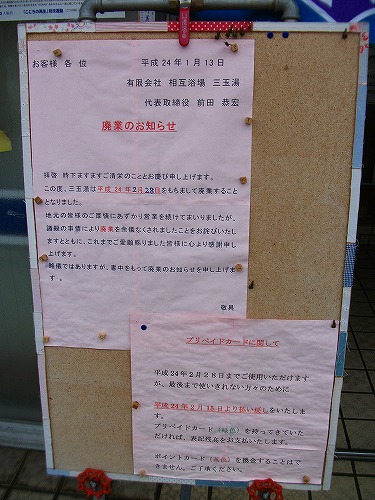 お客様 各位
平成24年1月13日
有限会社 相互浴場 三玉湯
代表取締役 前田 恭宏
廃業のお知らせ
拝啓 時下ますますご清栄のこととお慶び申し上げます。
この度、三玉湯は平成24年2月29日をもちまして廃業すること
となりました。
地元の皆様のご厚情にあずかり営業を続けてまいりましたが、
諸般の事情により廃業を余儀なくされましたことをお詫びいたし
ますとともに、これまでご愛顧賜りました皆様に心より感謝申し
上げます。
略儀ではありますが、書中をもって廃業のお知らせを申し上げま
す。
敬具
プリペイドカードに関して
平成24年2月28日までご使用いただけます
が、最後まで使いきれない方々のために
平成24年2月15日より払い戻しをいたしま
す。
プリペイドカード(緑色)を持ってきていた
だければ、表記残高をお支払いたします。
ポイントカード(茶色)を換金することはで
きません。ご了承ください。